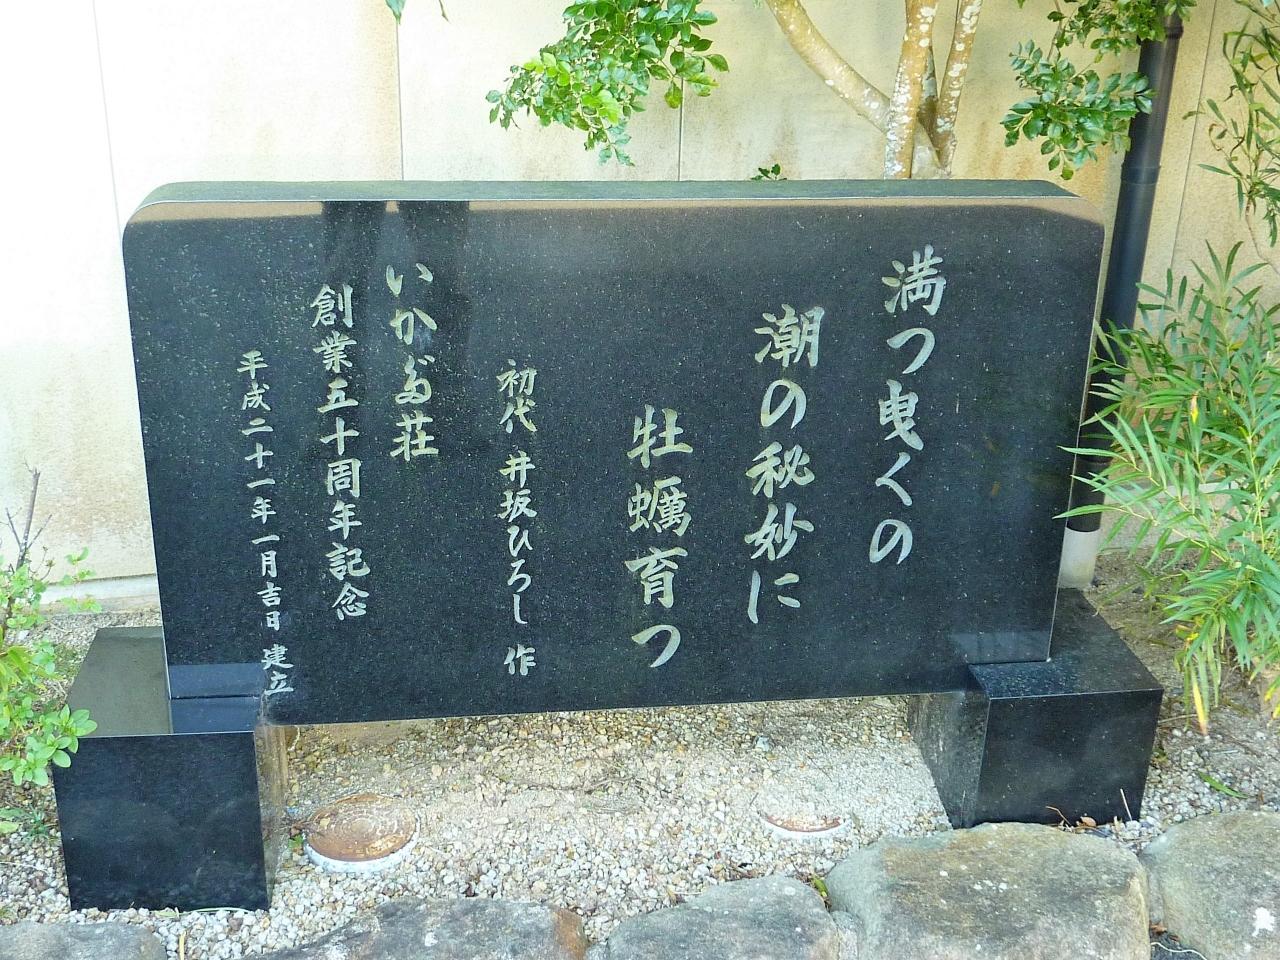 満つ曳くの
潮の秘妙に
牡蠣育つ
初代 井坂ひろし 作
いかだ荘
創業五十周年記念
平成二十一年一月吉日 建立